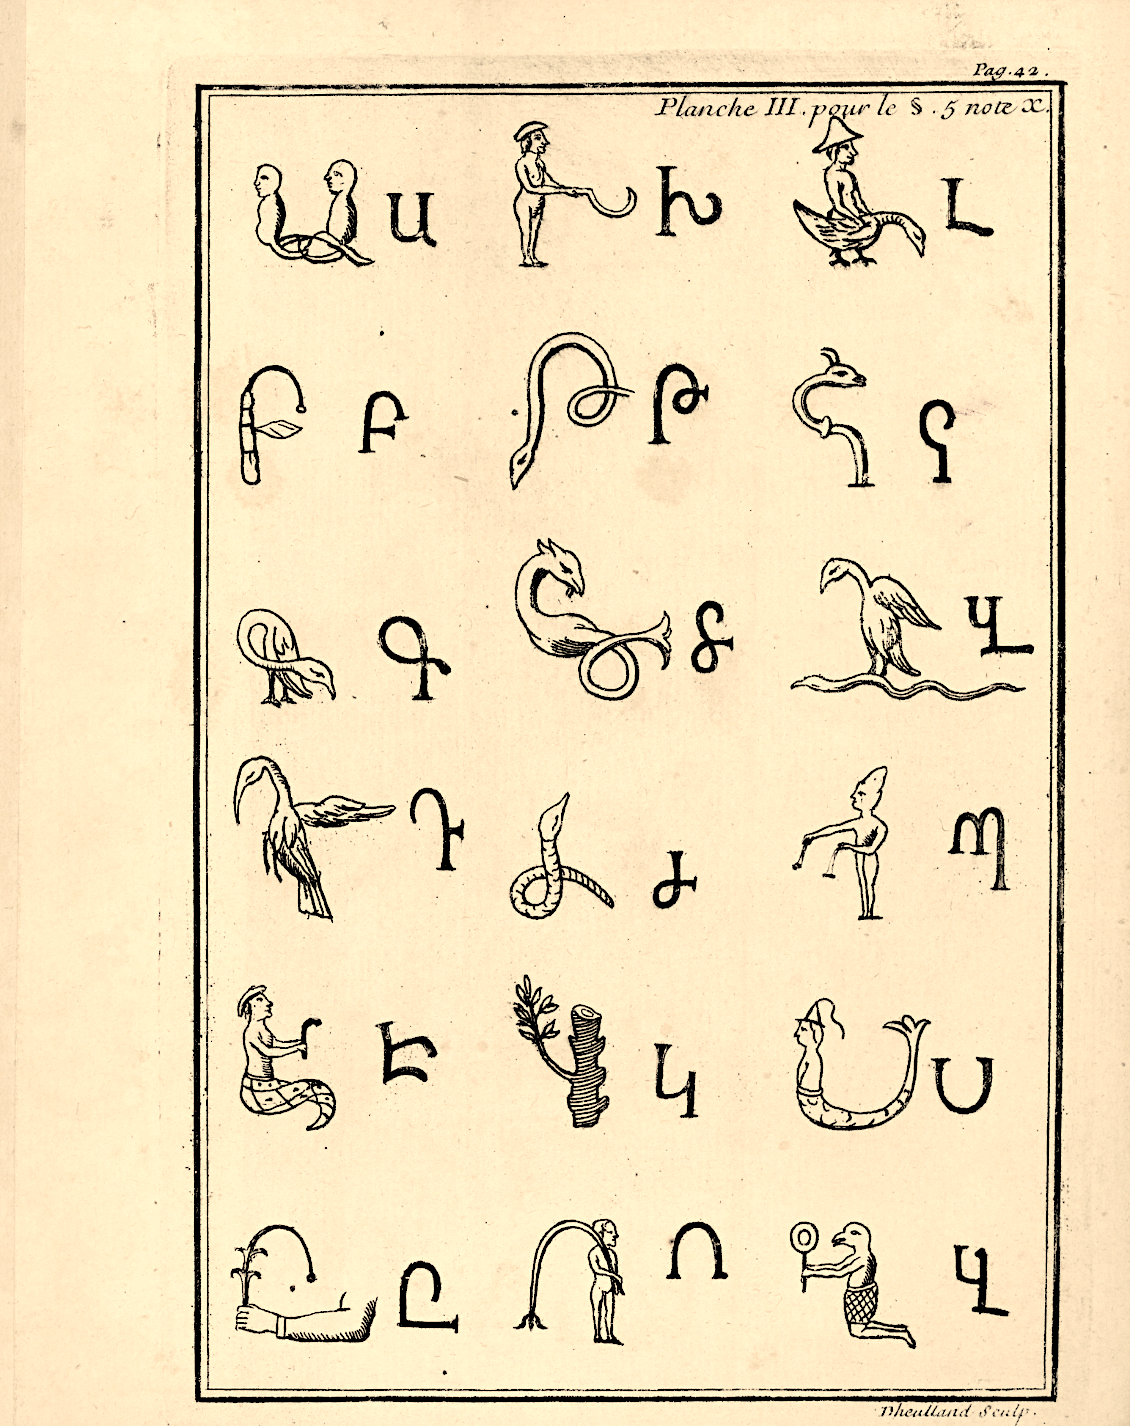 Pag. 42.
Planche III. pour le §. 5 note X.
ա խ Լ
Բ Թ
Գ Ձ վ
Դ ժ պ
Է կ Ս
Ը Ո վ
Dheulland Sculp.